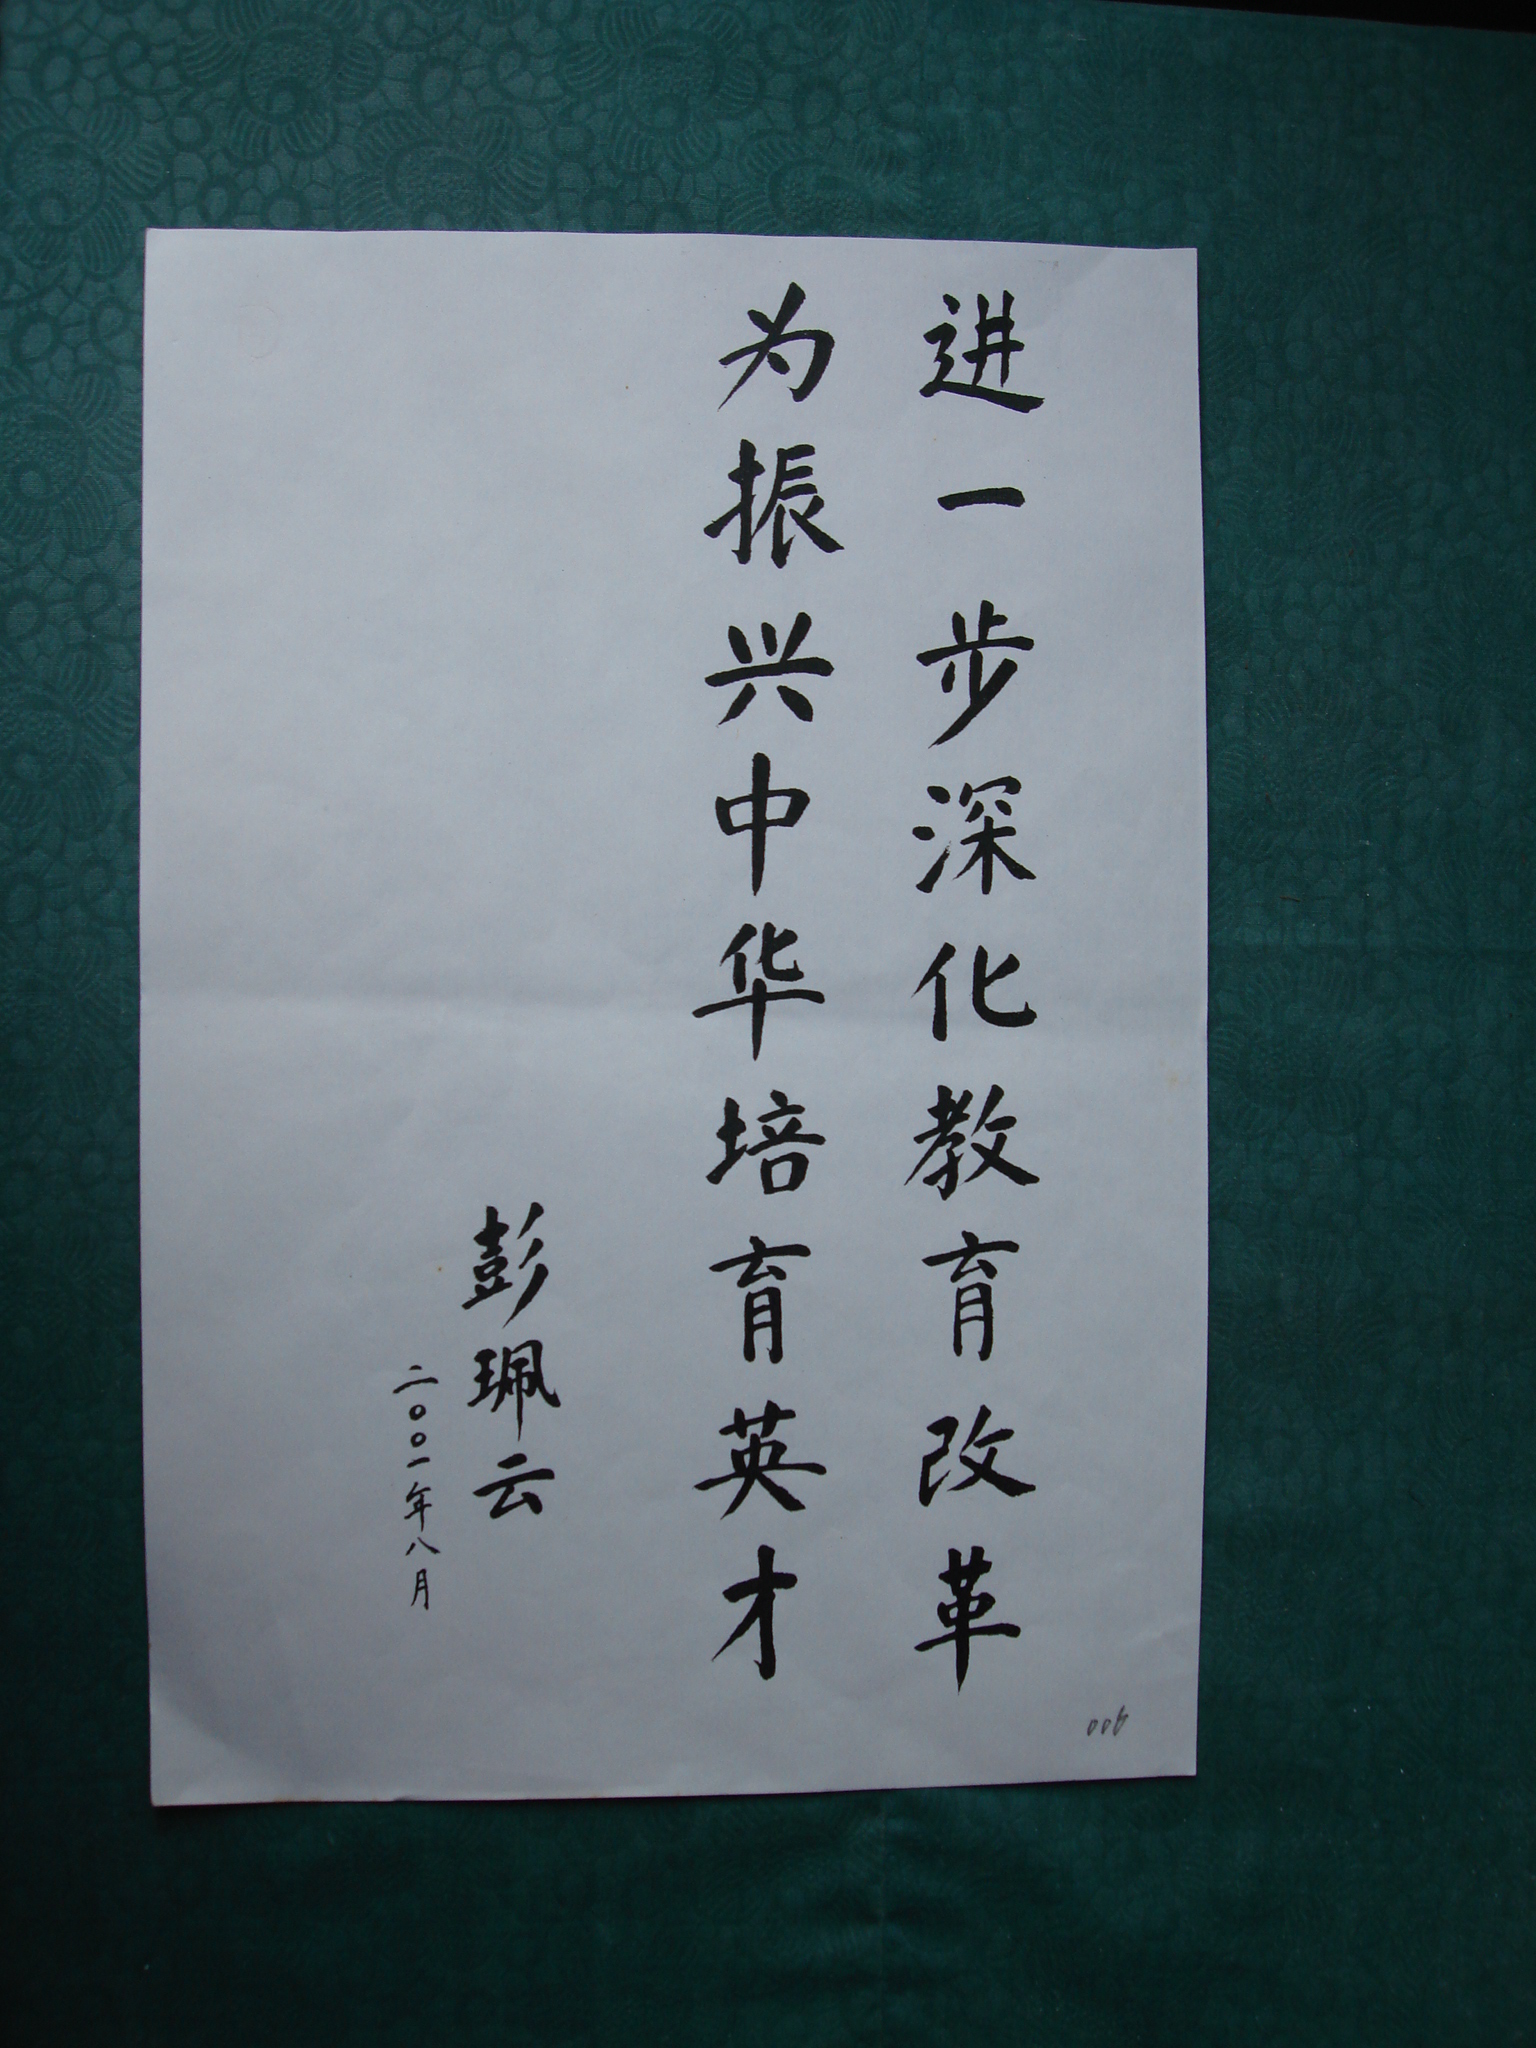 进一步深化教育改革
为振兴中华培育英才
彭珮云
二〇〇一年八月
006